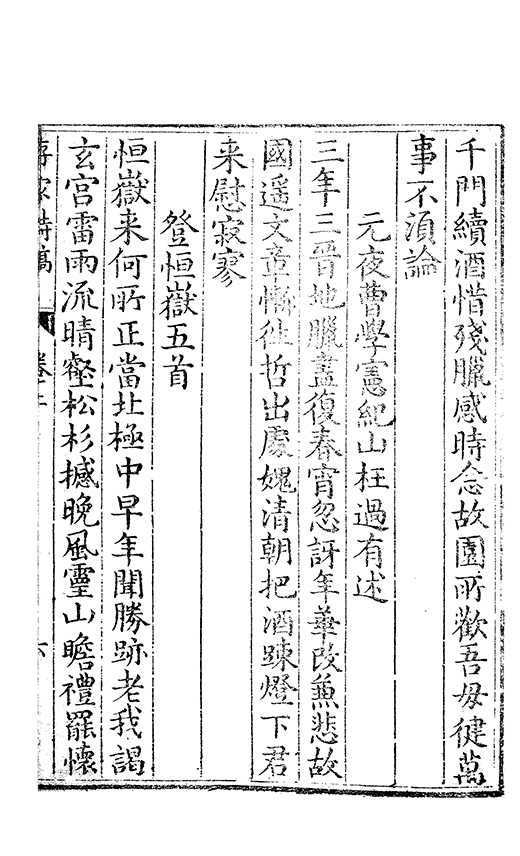 千門續酒惜殘臘感時念故園所歡吾母徤萬
事不湏論
元夜曹學憲紀山枉過有述
三年三晉地臘盡復春宵忽訝年華改兼悲故
國遥文章慚往哲出處媿清朝把酒踈燈下君
来慰寂寥
登恒嶽五首
恒嶽来何所正當北極中早年聞勝跡老我謁
玄宫雷雨流晴壑松杉撼晚風靈山瞻禮罷懷
詩稿 卷 六